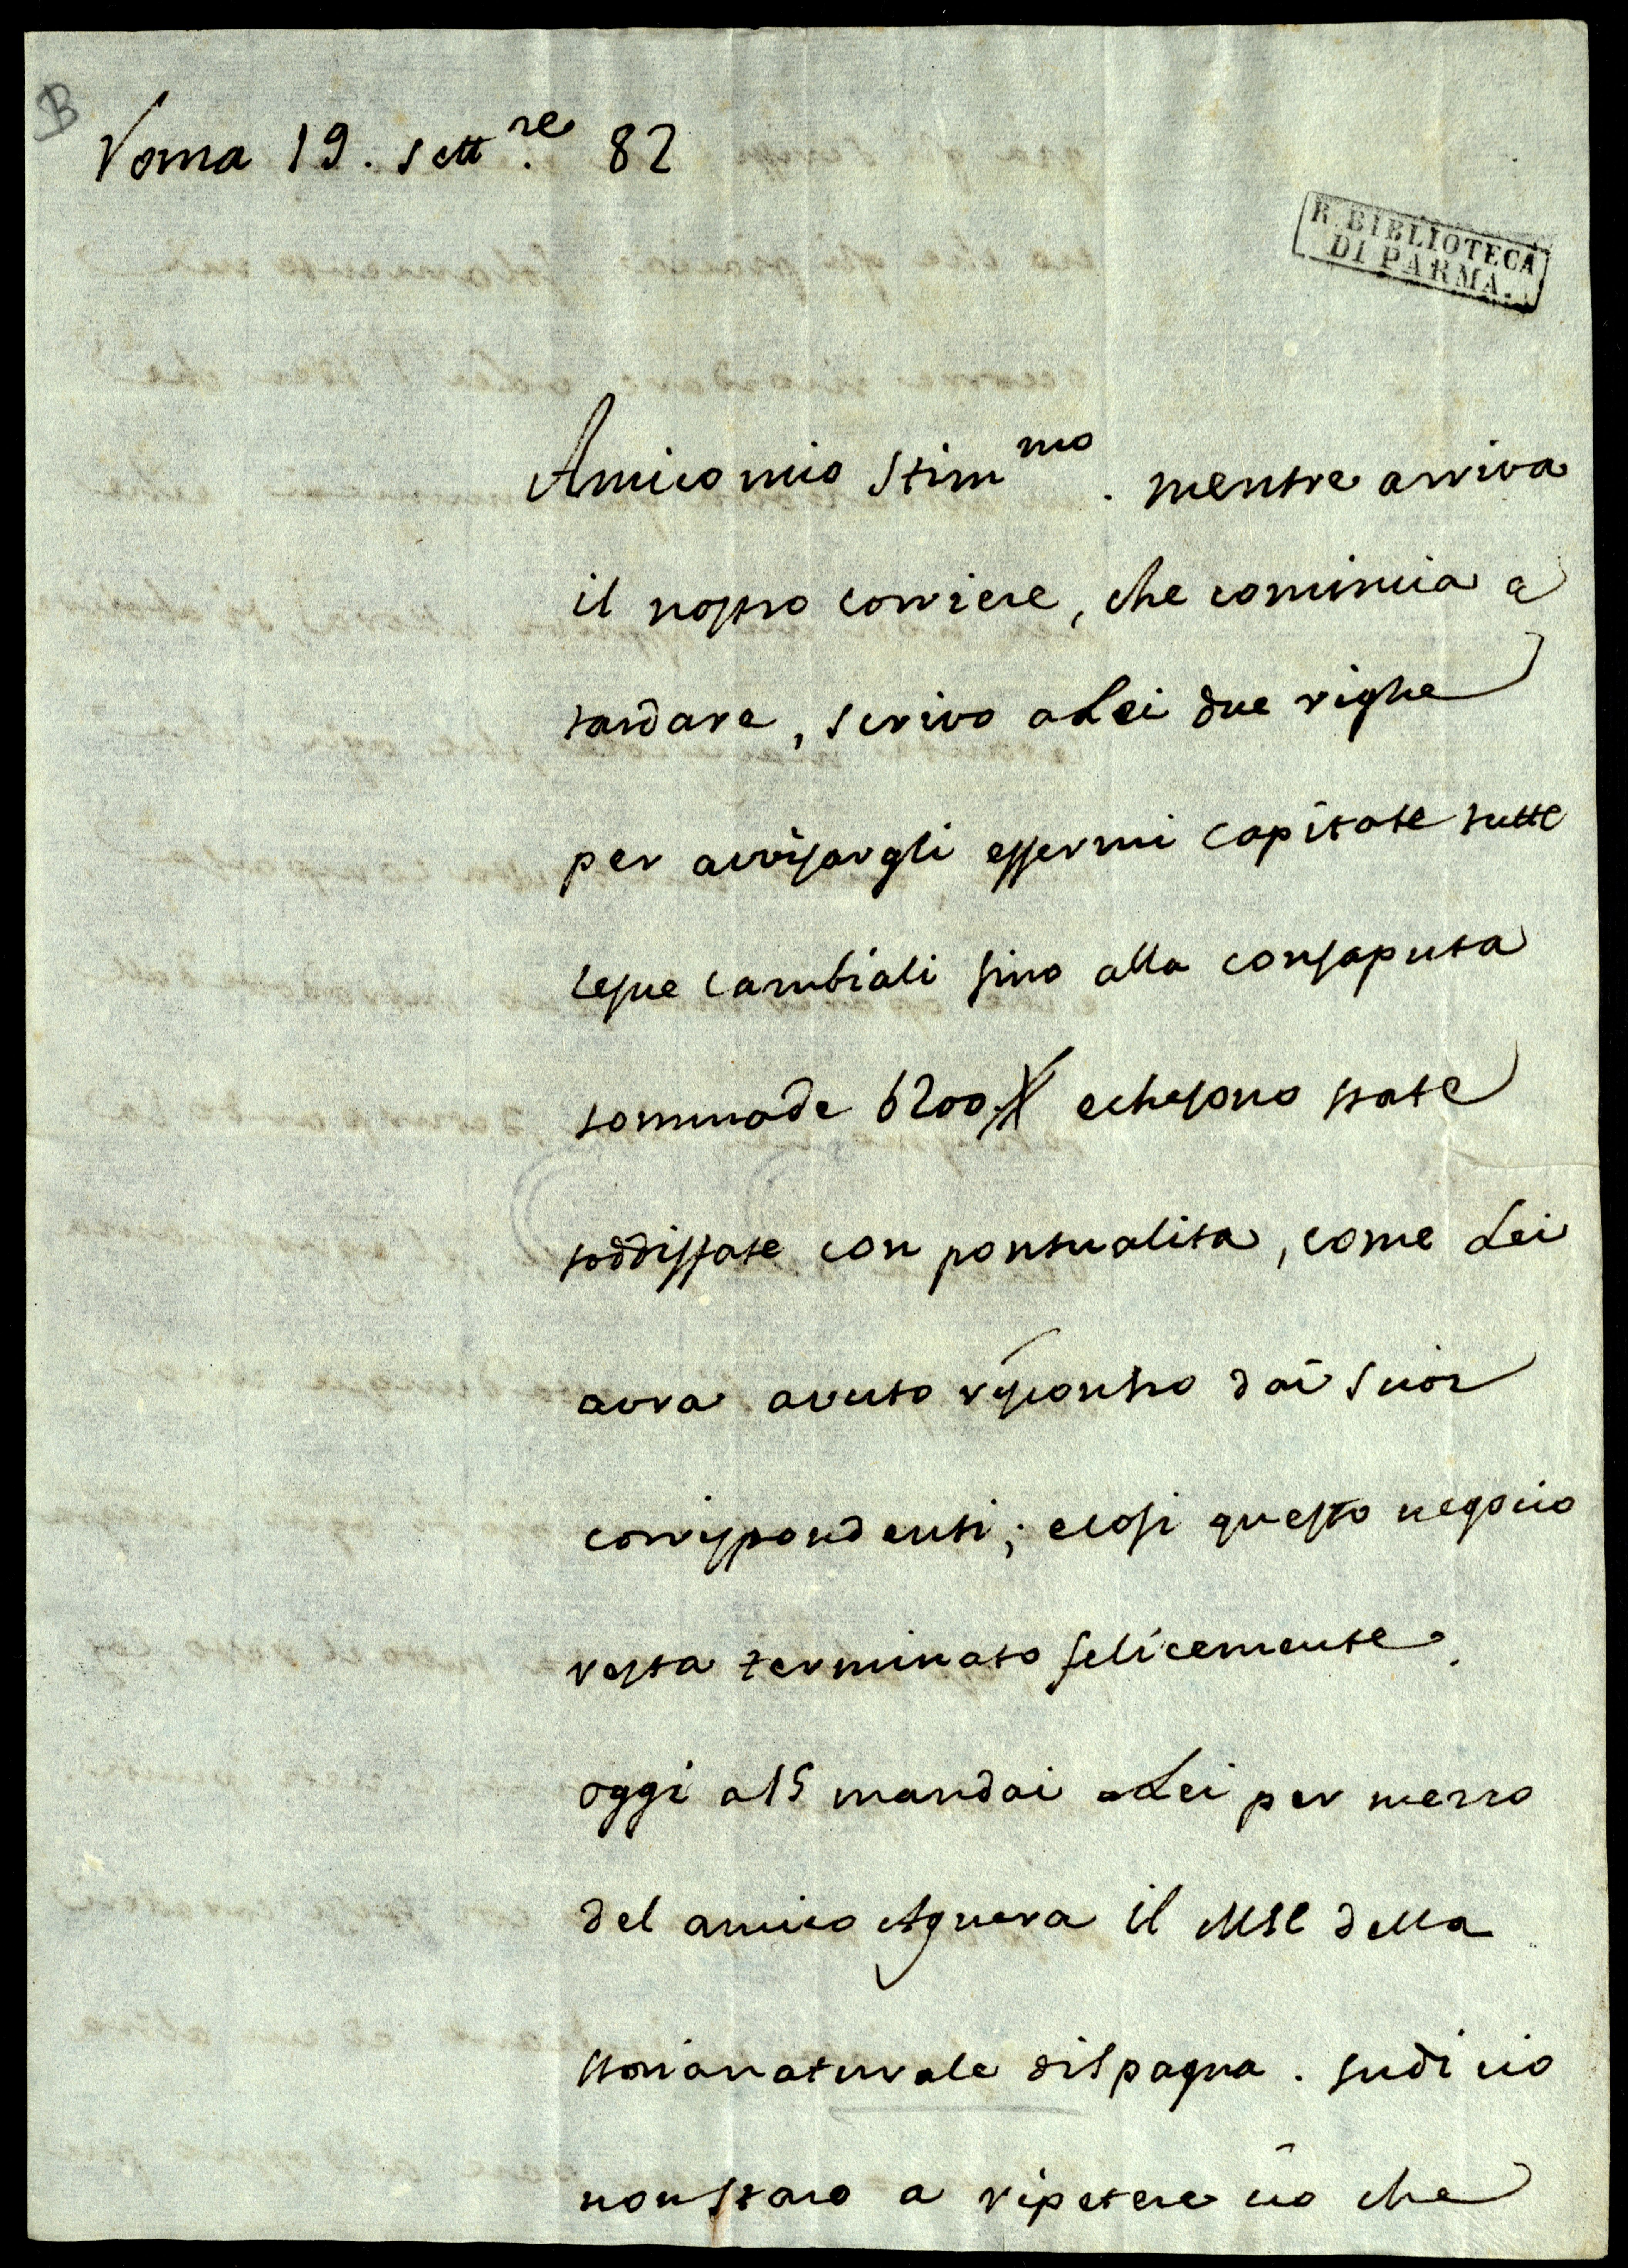 B
Roma 19. sett.re 82
R. BIBLIOTECA
DI PARMA.
Amico mio Stim.mo mentre arriva
il nostro corriere, che comincia a
tardare, scrivo a Lei due righe
per avvisargli essermi capitate tutte
le sue cambiali sino alla consaputa
somma de 6200 e che sono state
soddisfate con pontualita, come Lei
avra avuto riscontro dai suoi
corrispondenti; e cosi questo negocio
resta terminato felicemente.
oggi a 15 mandai a Lei per mezzo
del amico Aguera il MSC della
storia naturale di Spagna. su di cio
non staro a ripetere cio che